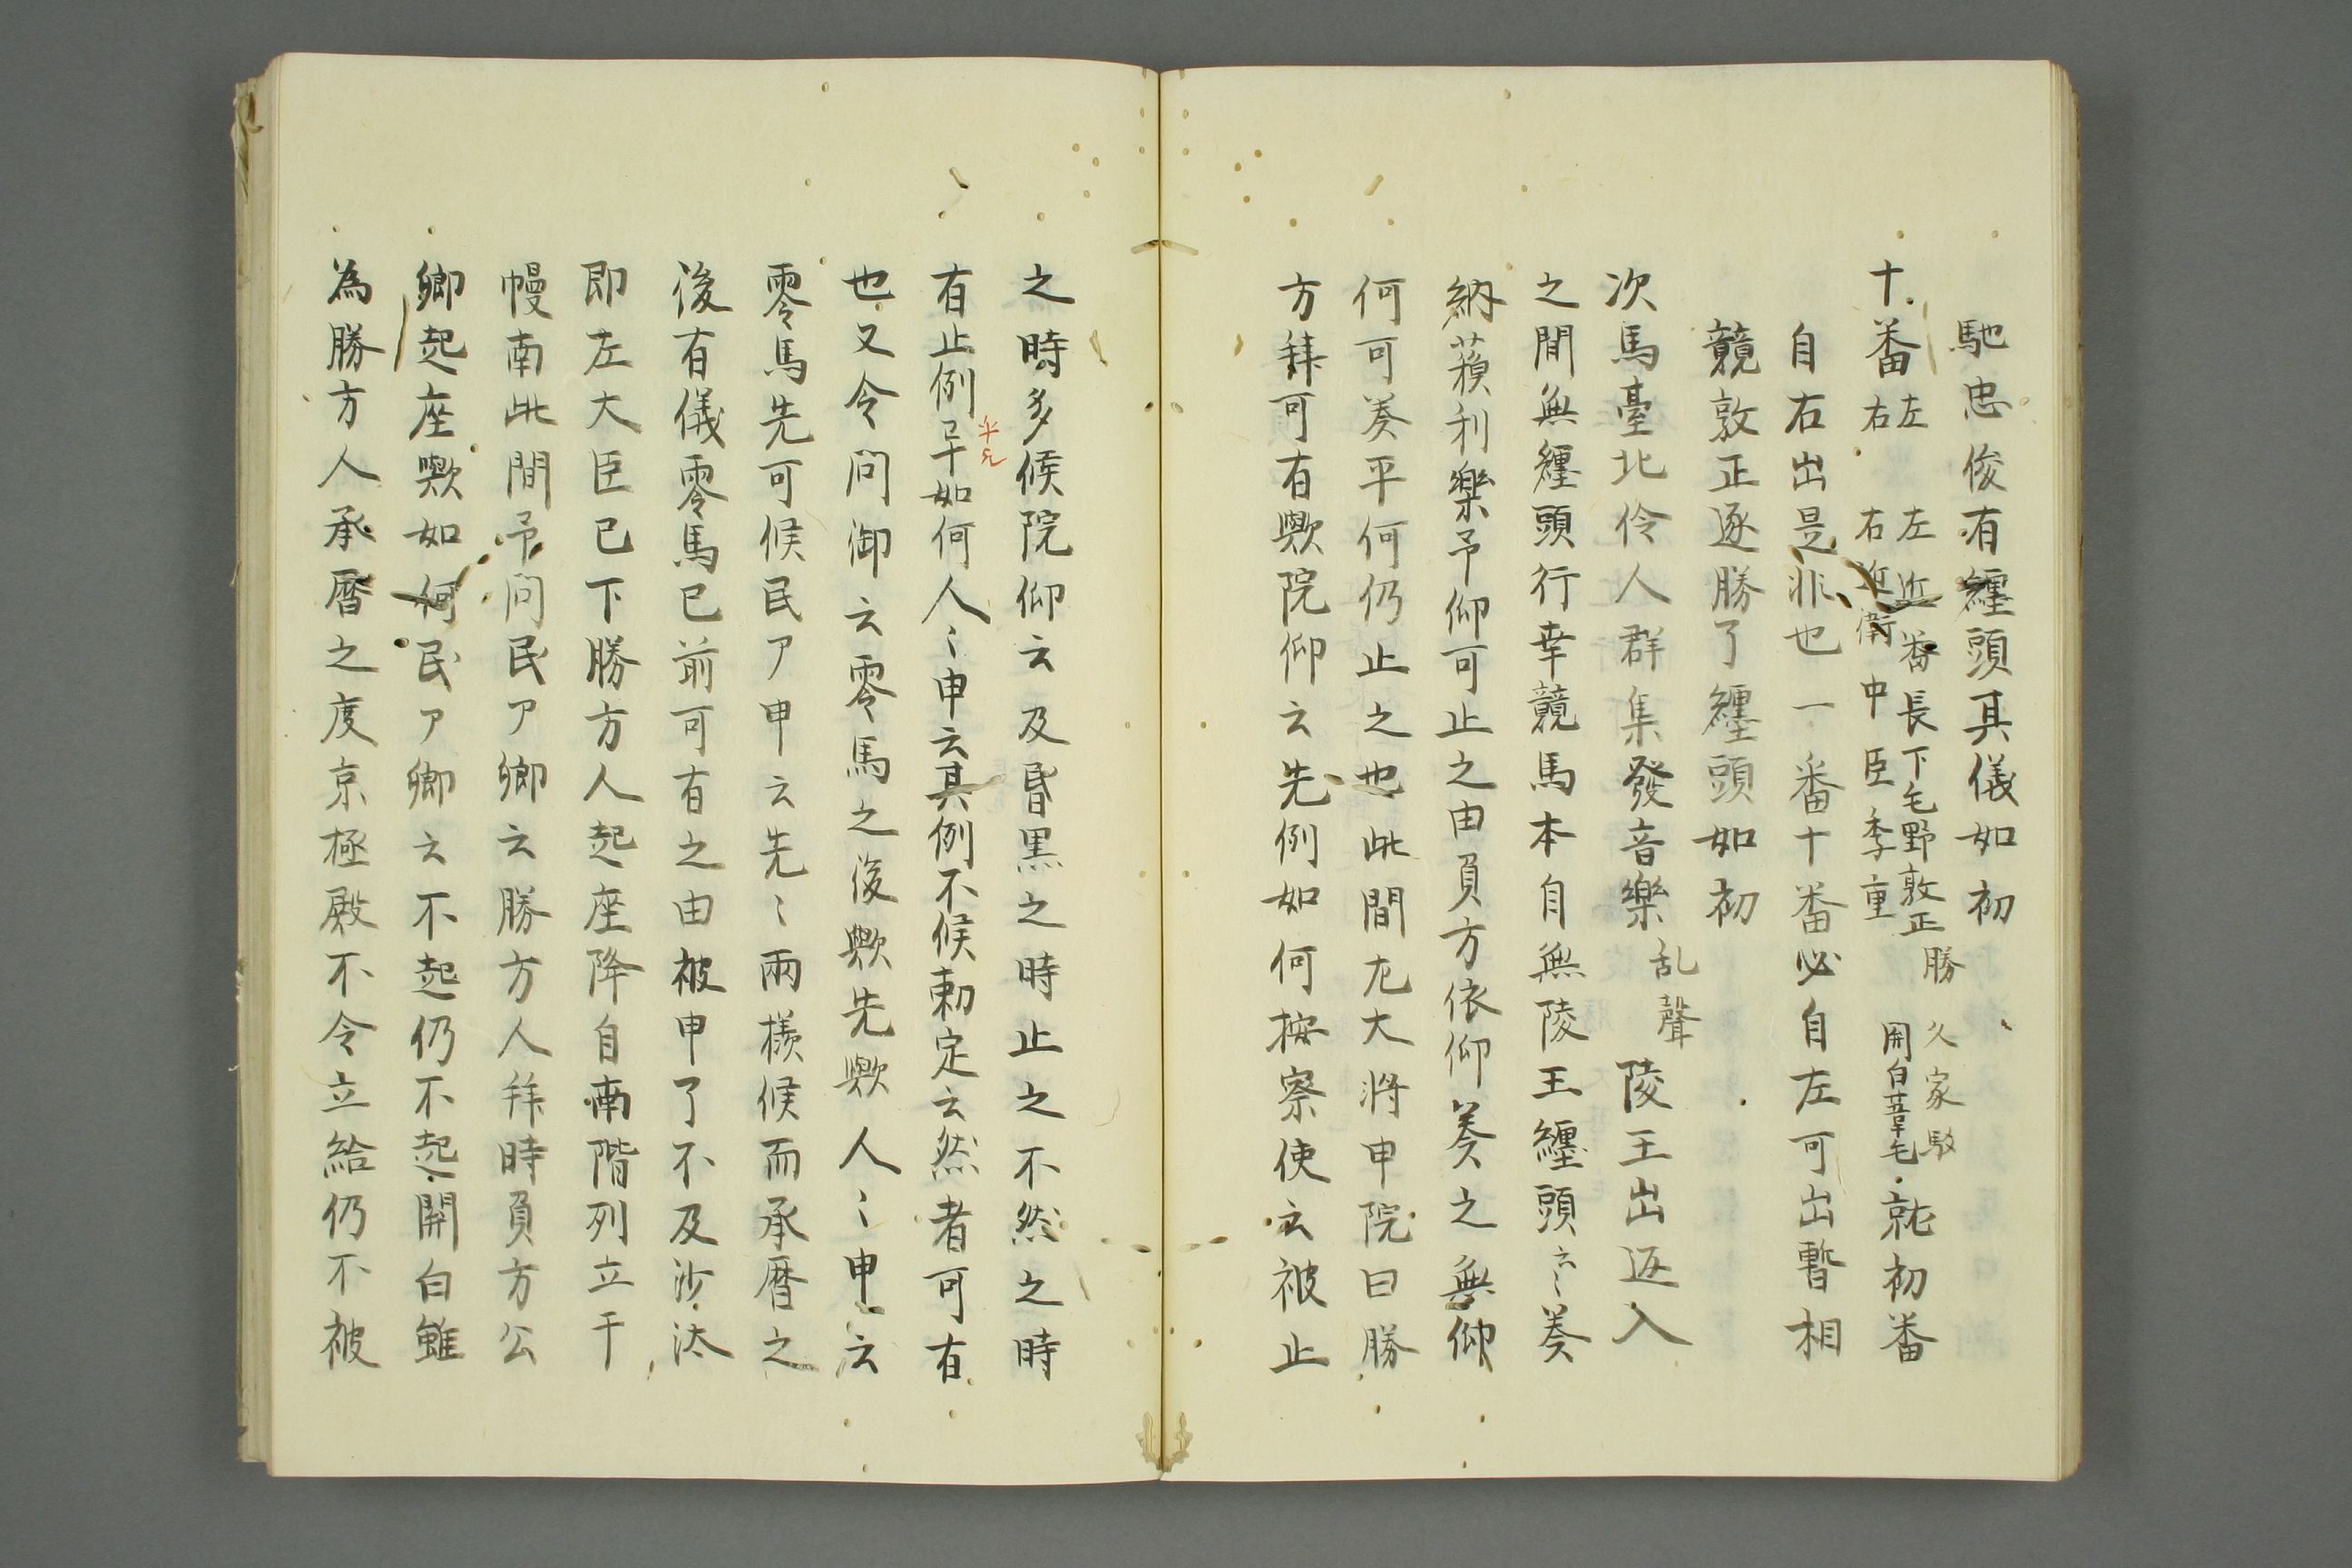 馳忠俊有纏頭其儀如初
十番左 左近番長下毛野敦正勝 久家駁
右 右近衛中臣季重 開白葦毛 就初番
自右出是非也一番十番必自左可出暫相
競敦正逐勝了纏頭如初
次馬臺北伶人群集發音樂乱聲 陵王出返入
之間無纏頭行幸競馬本自無陵王纏頭云〻奏
納蘓利樂予仰可止之由負方依仰奏之無仰
何可奏乎何仍止之也此間尤大将申院曰勝
方拜可有歟院仰云先例如何按察使云被止
之時多候院仰云及昏黒之時止之不然之時
有止例乎如何人〻申云其例不候勅定云然者可有
也又令問御云零馬之後歟先歟人〻申云
零馬先可候民ア申云先〻兩樣候而承暦之
後有儀零馬已前可有之由被申了不及沙汰
即左大臣已下勝方人起座降自南階列立干
幔南此間予問民ア卿云勝方人拜時負方公
卿起座歟如何民ア卿云不起仍不起開白雖
為勝方人承暦之度京極殿不令立給仍不被